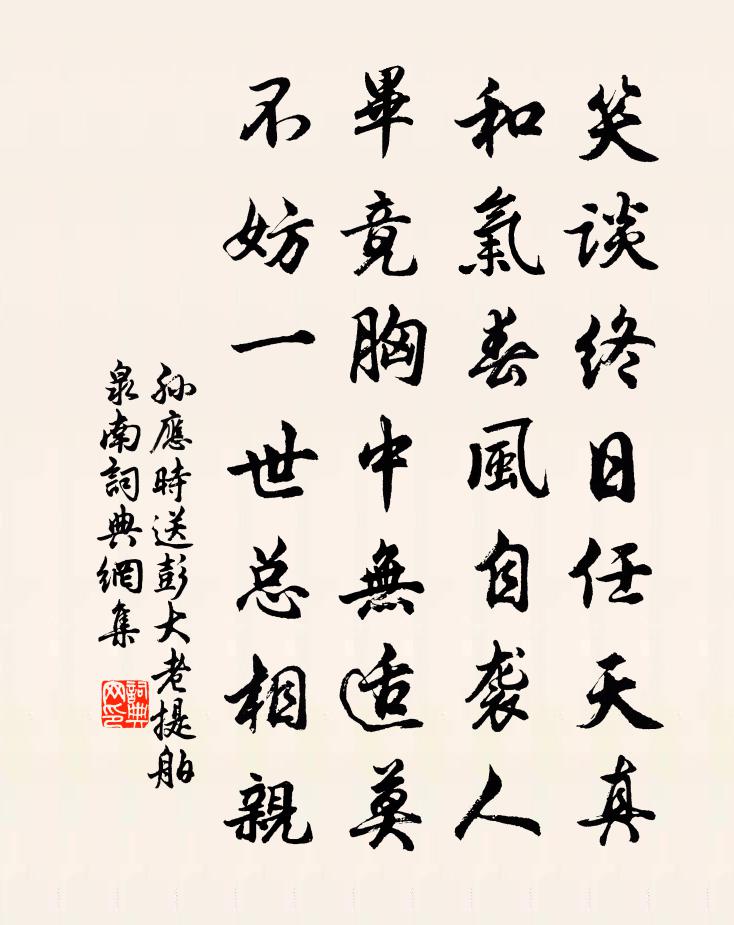 笑谈终日任天真
和氣春風自袭人
畢竟胸中無适莫
不妨一世总相親
孙應時送彭大老提舶
泉南詞典網集
詞典网印